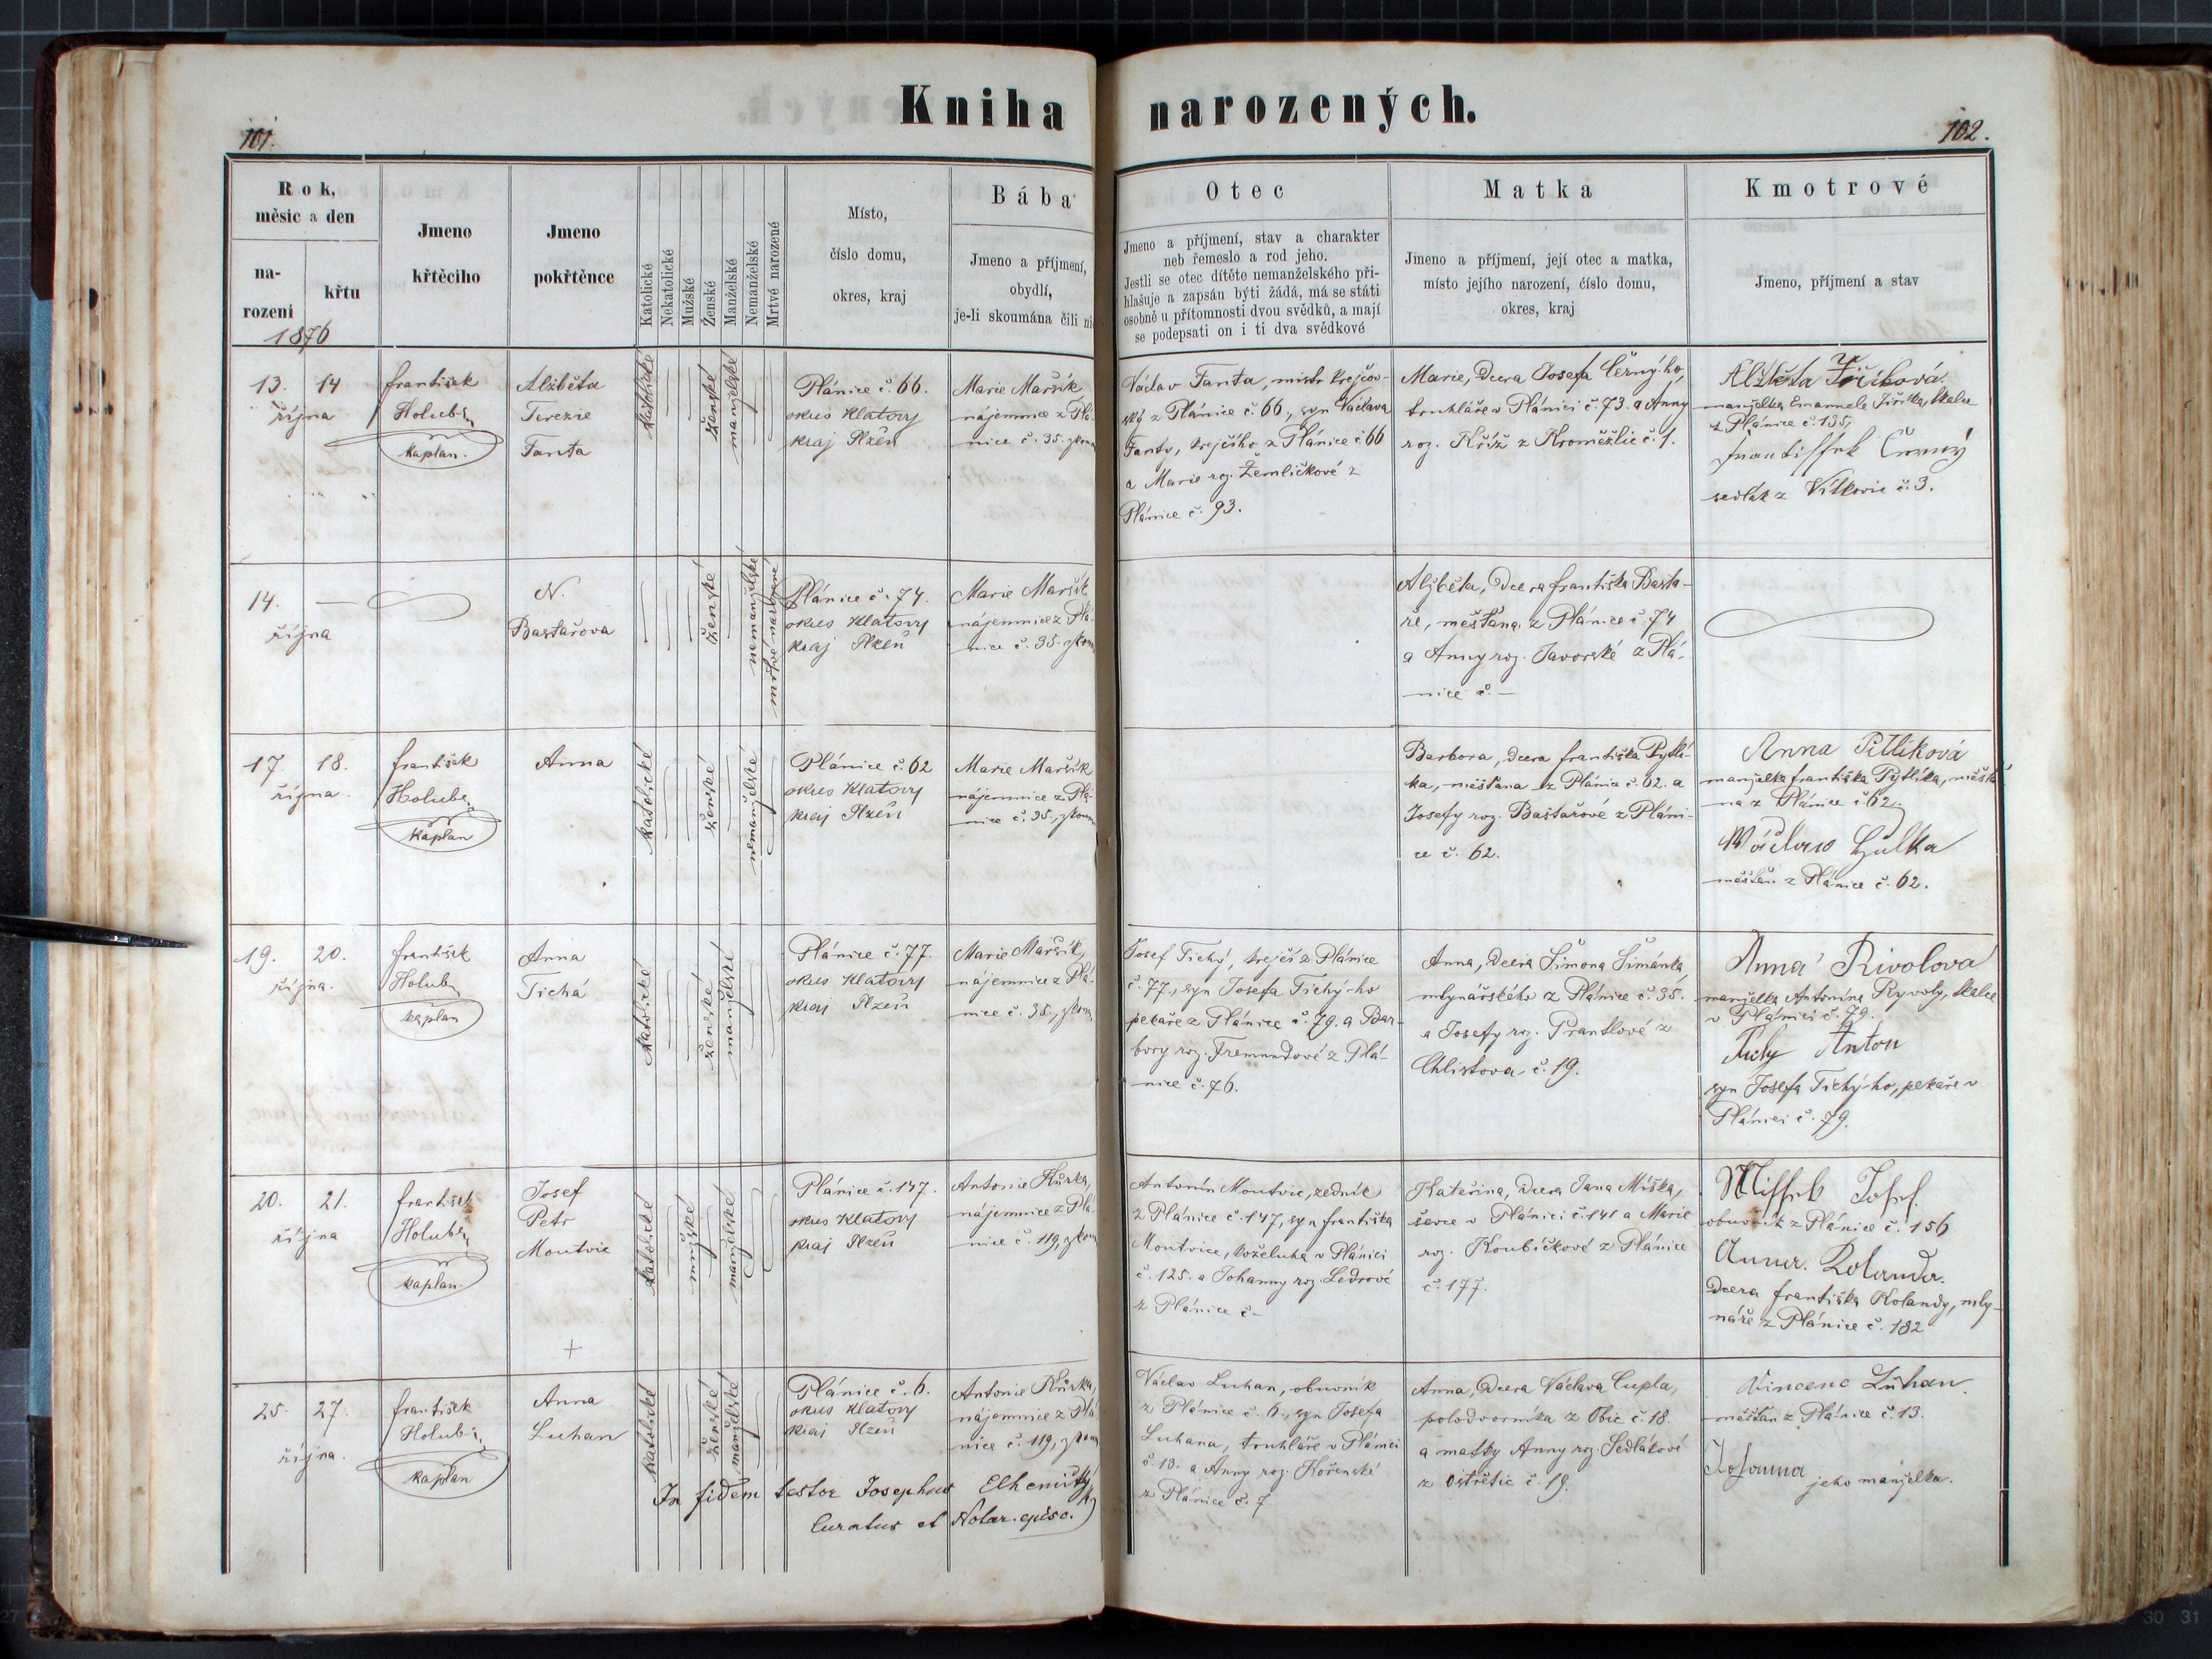 Kniha narozených.
101.
102.
Rok,
měsíc a den
na-
rozeni
křtu
1876
Jmeno
křtěcího
Jmeno
pokřtěnce
Katolické
Nekatolické
Mužské
Ženské
Manželské
Nemanželské
Mrtvé narozené
Místo,
číslo domu,
okres, kraj
Bába
Jmeno a příjmení,
obydlí,
je-li skoumána čili ni
Otec
Jmeno a příjmení, stav a charakter
neb řemeslo a rod jeho.
Jestli se otec dítěte nemanželského při-
hlašuje a zapsán býti žádá, má se státi
osobně u přítomnosti dvou svědků, a mají
se podepsati on i ti dva svědkové
Matka
Jmeno a příjmení, její otec a matka,
místo jejího narození, číslo domu,
okres, kraj
Kmotrové
Jmeno, příjmení a stav
13. 14
října
František
Holub
kaplan.
Alžběta
Terezie
Fanta
katolické
ženské
manželské
Plánice č. 66.
okres Klatovy
kraj Plzeň
Marie Maršík
nájemnice z Plá-
nice č. 35. zkoum
Václav Fanta, mistr krejčov-
ský z Plánice č. 66., syn Václava
Fanty, krejčího z Plánice č. 66
a Marie roz. Žemličkové z
Plánice č. 93.
Marie, dcera Josefa Černý-ho,
truhláře v Plánici č. 73. a Anny
roz. Kříž z Kroměžlic č. 1.
Alžběta Jiříková.
manželka Emanuele Jiříka, tkalce
z Plánice č. 135,
Frantissek Černý
sedlák z Vílkovic č. 3.
14. —
října
N.
Bastařova
ženské
nemanželské
mrtvě narozené
Plánice č. 74.
okres Klatovy
kraj Plzeň
Marie Maršík
nájemnice z Plá-
nice č. 35. zkoum
Alžběta, dcera Františka Basta-
ře, měšťana z Plánice č. 74
a Anny roz. Javorské z Plá-
nice č. —
17. 18.
října.
František
Holub
kaplan
Anna
katolické
ženské
nemanželské
Plánice č. 62
okres Klatovy
kraj Plzeň
Marie Maršík
nájemnice z Plá-
nice č. 35., zkoum
Barbora, dcera Františka Pytlí-
ka, měšťana z Plánice č. 62. a
Josefy roz. Baštařové z Pláni-
ce č. 62.
Anna Pitlíková
manželka Františka Pytlíka, měšťa-
na z Plánice č. 62.
Wáclaw Hulka
měšťan z Plánice č. 62.
19. 20.
října.
František
Holub
kaplan
Anna
Tichá
katolické
ženské
manželské
Plánice č. 77.
okres Klatovy
kraj Plzeň
Marie Maršík,
nájemnice z Plá-
nice č. 35., zkoum
Josef Tichý, krejčí z Plánice
č. 77., syn Josefa Tichý-ho
pekaře z Plánice č. 79. a Bar-
bory roz. Fremundové z Plá-
nice č. 76.
Anna, dcera Šimona Šimánka,
mlynářského z Plánice č. 35.
a Josefy roz. Prantlové z
Chlistova č. 19.
Anna Rivolova
manželka Antonína Ryvoly, tkalce
v Plánici č. 79.
Tichy Anton
syn Josefa Tichý-ho, pekaře v
Plánici č. 79.
20. 21.
října
František
Holub
kaplan
Josef
Petr
Moutvic
katolické
mužské
manželské
Plánice č. 147.
okres Klatovy
kraj Plzeň
Antonie Kůrka,
nájemnice z Plá-
nice č. 119, zkoum
Antonín Moutvic, zedník
z Plánice č. 147, syn Františka
Moutvice, koželuha v Plánici
č. 125. a Johanny roz. Ledrové
z Plánice č —
Kateřina, dcera Jana Míška,
ševce v Plánici č. 141 a Marie
roz. Koubíčkové z Plánice
č. 177.
Missek Josef.
obuvník z Plánice č. 156
Anna. Rolanda.
dcera Františka Rolandy, mly-
náře z Plánice č. 182
+
25. 27.
října.
František
Holub
kaplan
Anna
Luhan
katolické
ženské
manželské
Plánice č. 6.
okres Klatovy
kraj Plzeň
Antonie Kůrka,
nájemnice z Plá-
nice č. 119, zkoum
Václav Luhan, obuvník
z Plánice č. 6., syn Josefa
Luhana, truhláře v Plánici
č. 13. a Anny roz. Kořenské
z Plánice č. 7.
Anna, dcera Václava Cupla,
polodvorníka z Obic č. 18.
a matky Anny roz. Sedlákové
z Ostřetic č. 19.
Vincenc Luhan.
měšťan z Plánice č. 13.
Johanna
jeho manželka.
In fidem testor Josephus
Curatus et Notar. episc.